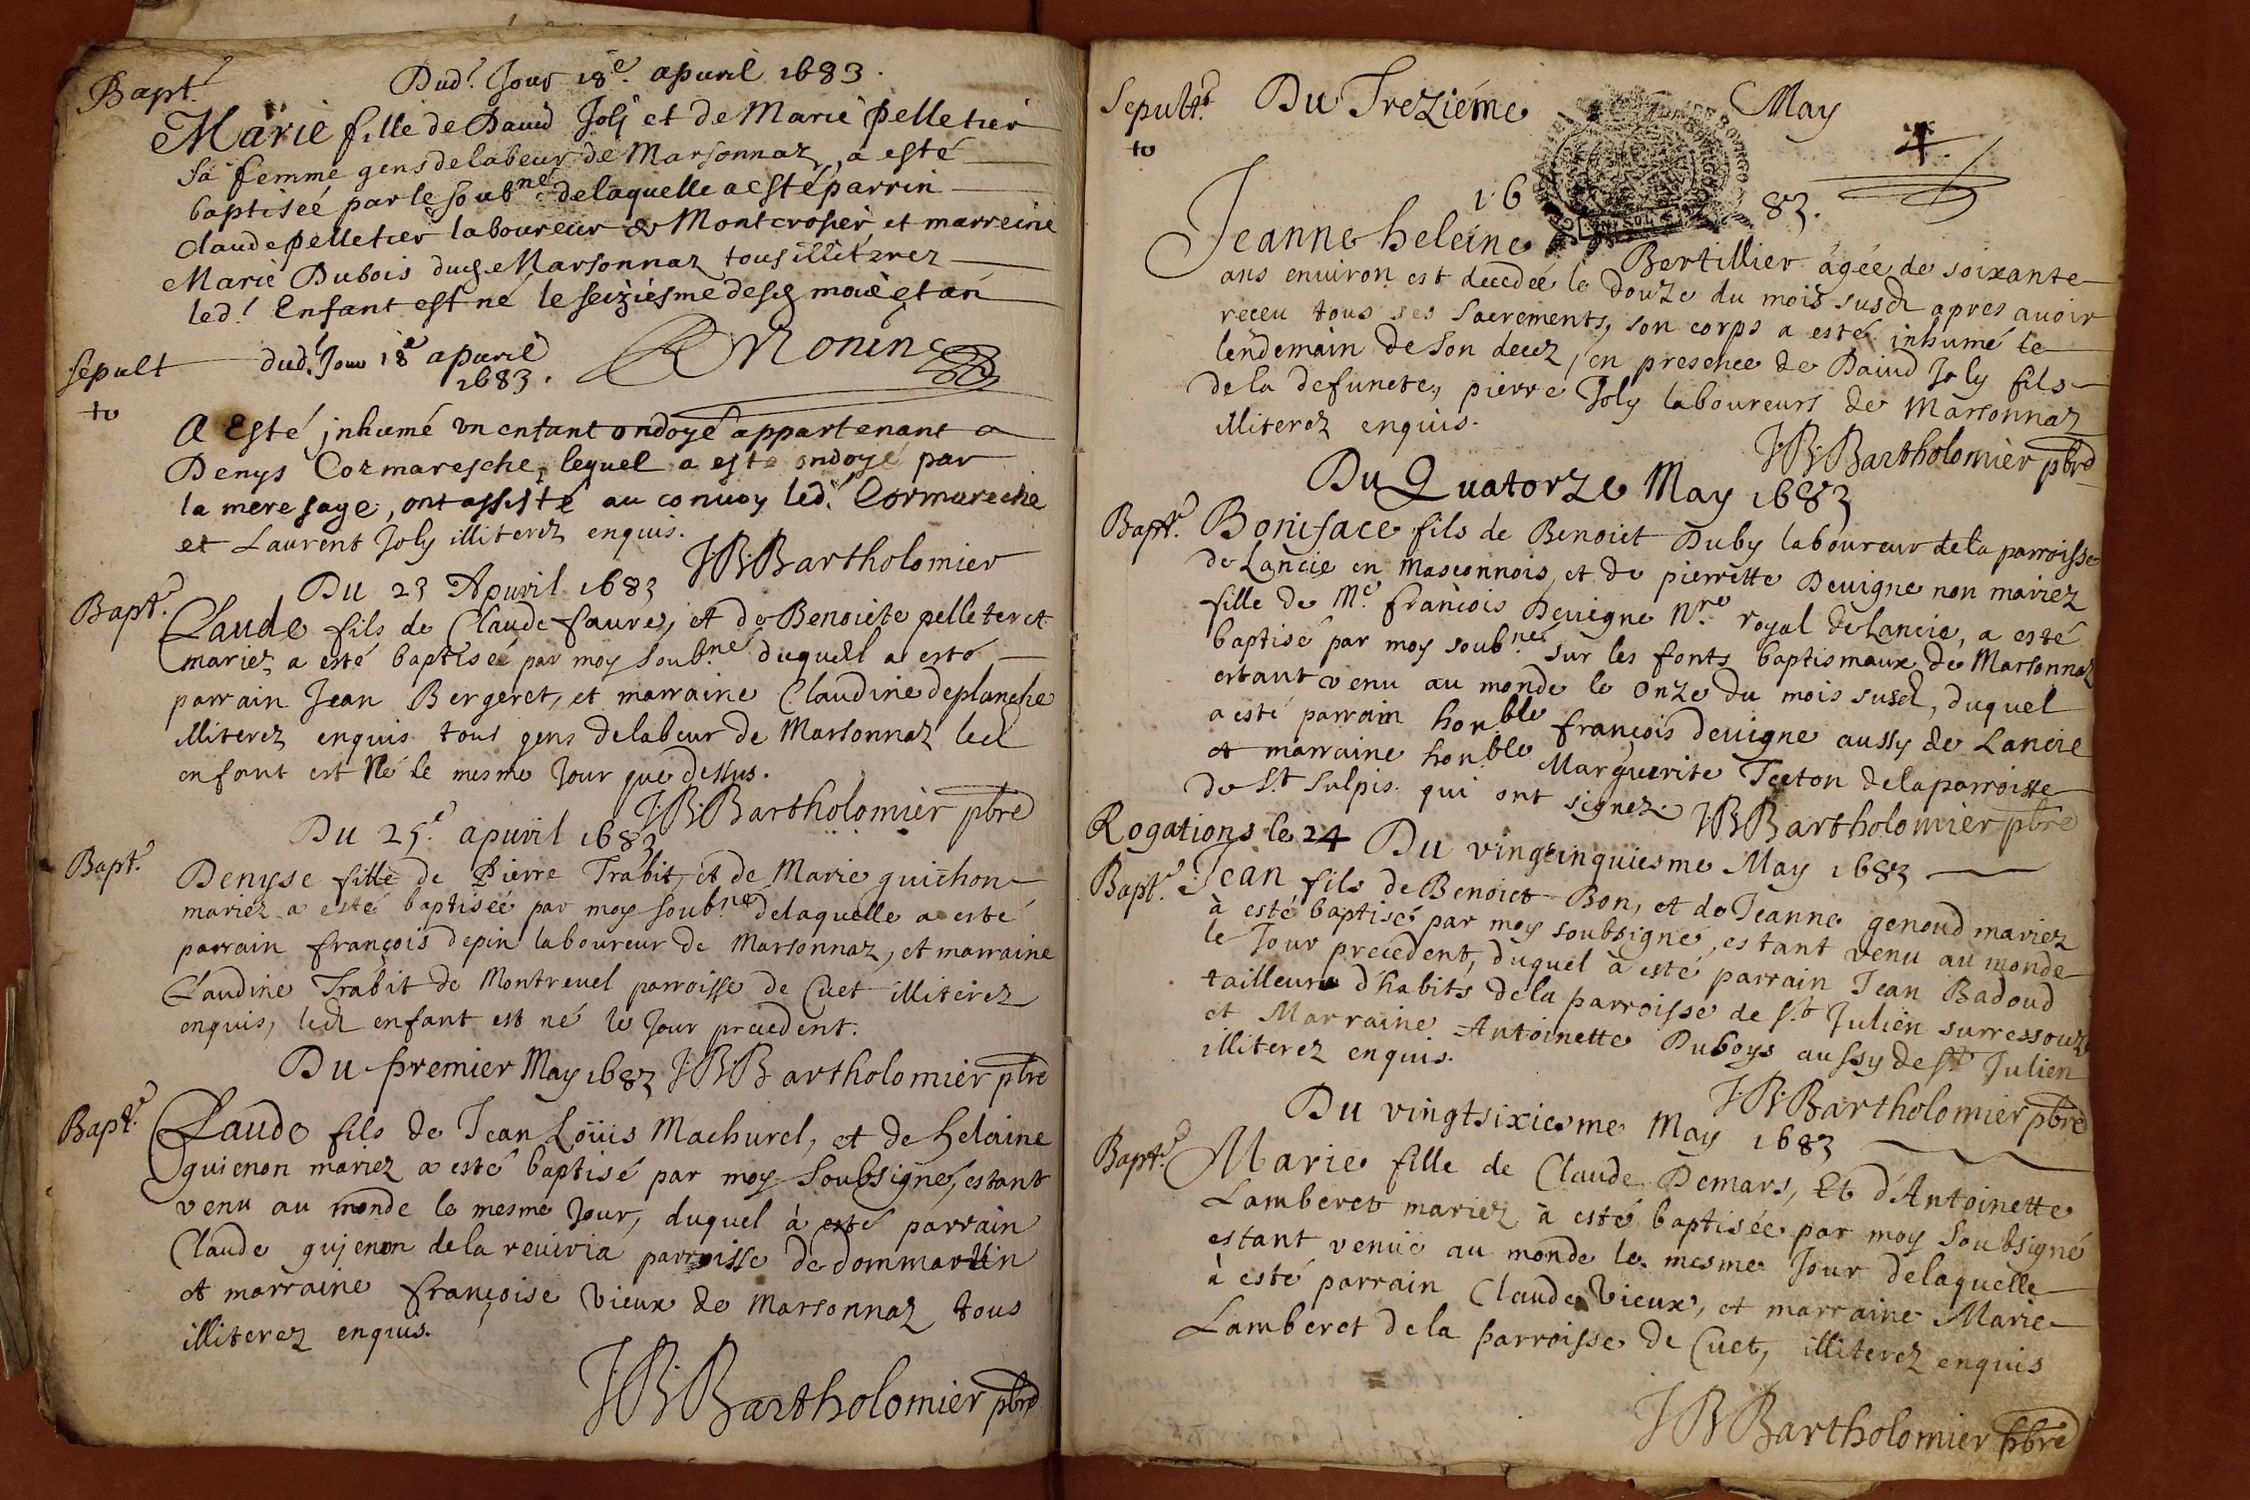 Bapt.e Dud.t Jour 18.e apuril 1683.
Mariè fille de Dauid Joli et de Mariè pelletier
sa femme gens de labeur de Marsonnaz, a esté
baptiseé par le soub.né delaquelle a esté parrin
claude pelletier laboureur de Montcrosier et marreine
Marie Dubois dud. Marsonnaz tous illiterez
led.t Enfant est né le seiziesme desd. mois et an
Monin
sepult dud.t Jour 18e apuril
1683.
to
A Esté jnhumé vn enfant ondoyé appartenant a
Denys Cormaresche, lequel a este ondoyé par
la mere sage, ont assisté au conuoy led.t Cormareche
et Laurent Joly illiterez enquis.
J.B.Bartholomier
Du 23 Apuril 1683
Bapt.e Claude fils de Claude faure, et de Benoicte pelleteret
mariez a esté baptisée par moy soub.né duquel a esté
parrain Jean Bergeret, et marraine Claudine deplanche
illiterez enquis tous gens delabeur de Marsonnaz led
enfant est Né le mesme Jour que dessus.
J.B.Bartholomier pbre
Du 25.e apuril 1683
Bapt.e Denyse fille de Pierre Trabit, et de Marie guichon
mariez a esté baptisée par moy soub.né delaquelle a esté
parrain françois depin laboureur de Marsonnaz, et marraine
Claudine Trabit de Montreuel parroisse de Cuet illiterez
enquis, led enfant est né le Jour precedent.
Du premier May 1683 J.B.Bartholomier pbre
Bapt.e Claude fils de Jean Loüis Machurel, et de helaine
guienon mariez a esté baptisé par moy Soubsigné, estant
venu au monde le mesme Jour, duquel à esté parrain
Claude gujenon dela reuiria parroisse de dommartin
et marraine françoise Vieux de Marsonnaz tous
illiterez enquis.
J.B.Bartholomier pbre
Sepult.e Du Trezième May
to
4.
16 83.
Jeanne heleine Bertillier ágée de soixante
ans enuiron est decedée le Douze du mois susd apres auoir
receu tous ses sacrements, son corps a esté inhumé le
lendemain de son decez, en presence de Dauid Joly fils
dela defuncte, pierre Joly laboureurs de Marsonnaz
illiterez enquis.
J.B.Bartholomier pbre
Du Quatorze May 1683
Bapt.e Boniface fils de Benoict Duby laboureur dela parroisse
de Lancie en Masconnois, et de pierrette Deuigne non mariez
fille de M.e françois Deuigne N.re royal de Lancie, a esté
baptisé par moy soub.né sur les fonts baptismaux de Marsonnaz
estant venu au monde le Onze du mois susd, duquel
a esté parrain hon.ble françois deuigne aussy de Lancie
et marraine hon.ble Marguerite Teeton dela parroisse
de S.t Sulpis qui ont signez. J.B.Bartholomier pbre
Rogations le 24 Du vingtcinquiesme May 1683
Bapt.e Jean fils de Benoict Bon, et de Jeanne genoud mariez
à esté baptisé par moy soubsigné, estant venu au monde
le Jour precedent, duquel à esté parrain Jean Badoud
tailleur d'habits dela parroisse de S.t Julien surressouze
et Marraine Antoinette Duboys aussy de S.t Julien
illiterez enquis.
J.B.Bartholomier pbre
Du vingtsixiesme May 1683
Bapt.e Marie fille de Claude Demars, Et d'Antoinette
Lamberet mariez à esté baptisée par moy Soubsigné
estant venüe au monde le mesme Jour delaquelle
à esté parrain Claude Vieux, et marraine Marie
Lamberet dela parroisse de Cuet, illiterez enquis
J.B.Bartholomier pbre